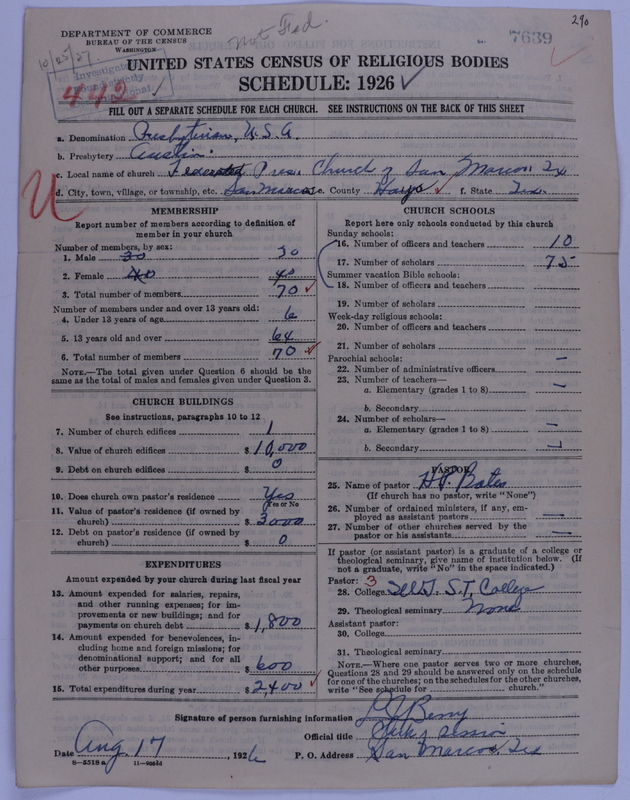 290
DEPARTMENT OF COMMERCE
BUREAU OF THE CENSUS
WASHINGTON
Not Fed.
7639
10/25/27
442
UNITED STATES CENSUS OF RELIGIOUS BODIES
SCHEDULE: 1926
FILL OUT A SEPARATE SCHEDULE FOR EACH CHURCH. SEE INSTRUCTIONS ON THE BACK OF THIS SHEET
a. Denomination Presbyterian, U.S.A.
b. Presbytery Austin
c. Local name of church Federated Pres. Church of San Marcos, Tex
d. City, town, village, or township, etc. San Marcos e. County Hays f. State Tex.
U
MEMBERSHIP
Report number of members according to definition of
member in your church
Number of members, by sex:
1. Male 30 30
2. Female 40 40
3. Total number of members 70
Number of members under and over 13 years old:
4. Under 13 years of age 6
5. 13 years old and over 64
6. Total number of members 70
NOTE.—The total given under Question 6 should be the
same as the total of males and females given under Question 3.
CHURCH BUILDINGS
See instructions, paragraphs 10 to 12
7. Number of church edifices 1
8. Value of church edifices $ 10,000
9. Debt on church edifices $ 0
10. Does church own pastor's residence Yes
Yes or No
11. Value of pastor's residence (if owned by
church) $ 3000
12. Debt on pastor's residence (if owned by
church) $ 0
EXPENDITURES
Amount expended by your church during last fiscal year
13. Amount expended for salaries, repairs,
and other running expenses; for im-
provements or new buildings; and for
payments on church debt $ 1,800
14. Amount expended for benevolences, in-
cluding home and foreign missions; for
denominational support; and for all
other purposes $ 600
15. Total expenditures during year $ 2,400
CHURCH SCHOOLS
Report here only schools conducted by this church
Sunday schools:
16. Number of officers and teachers 10
17. Number of scholars 75
Summer vacation Bible schools:
18. Number of officers and teachers
19. Number of scholars
Week-day religious schools:
20. Number of officers and teachers
21. Number of scholars
Parochial schools:
22. Number of administrative officers —
23. Number of teachers—
a. Elementary (grades 1 to 8) —
b. Secondary
24. Number of scholars—
a. Elementary (grades 1 to 8) —
b. Secondary —
PASTOR
25. Name of pastor H.P. Bates
(If church has no pastor, write "None")
26. Number of ordained ministers, if any, em-
ployed as assistant pastors —
27. Number of other churches served by the
pastor or his assistants —
If pastor (or assistant pastor) is a graduate of a college or
theological seminary, give name of institution below. (If
not a graduate, write "No" in the space indicated.)
Pastor: 3
28. College S.T. College
29. Theological seminary None
Assistant pastor:
30. College
31. Theological seminary
NOTE.—Where one pastor serves two or more churches,
Questions 28 and 29 should be answered only on the schedule
for one of the churches; on the schedules for the other churches,
write "See schedule for church."
Signature of person furnishing information Berry
Official title Clerk of Session
Date Aug 17, 1926 P. O. Address San Marcos, Tex
8—2518 a